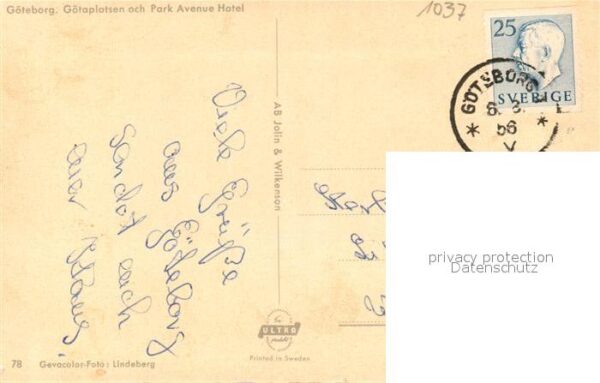 Göteborg. Götaplatsen och Park Avenue Hotel
1037
25
SVERIGE
GÖTEBORG
56
Viele Grüße
aus Göteborg
sendet euch
euer Klaus!
AB Jolin & Wilkenson
privacy protection
Datenschutz
ULTRA
Printed in Sweden
78 Gevacolor-Foto: Lindeberg